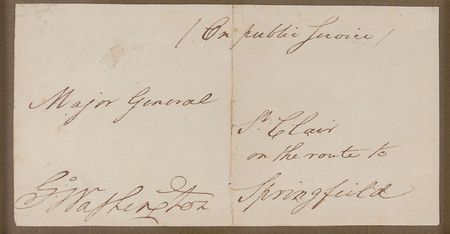 / On public Service /
Major General
St Clair
on the route to
Springfield
Go Washington